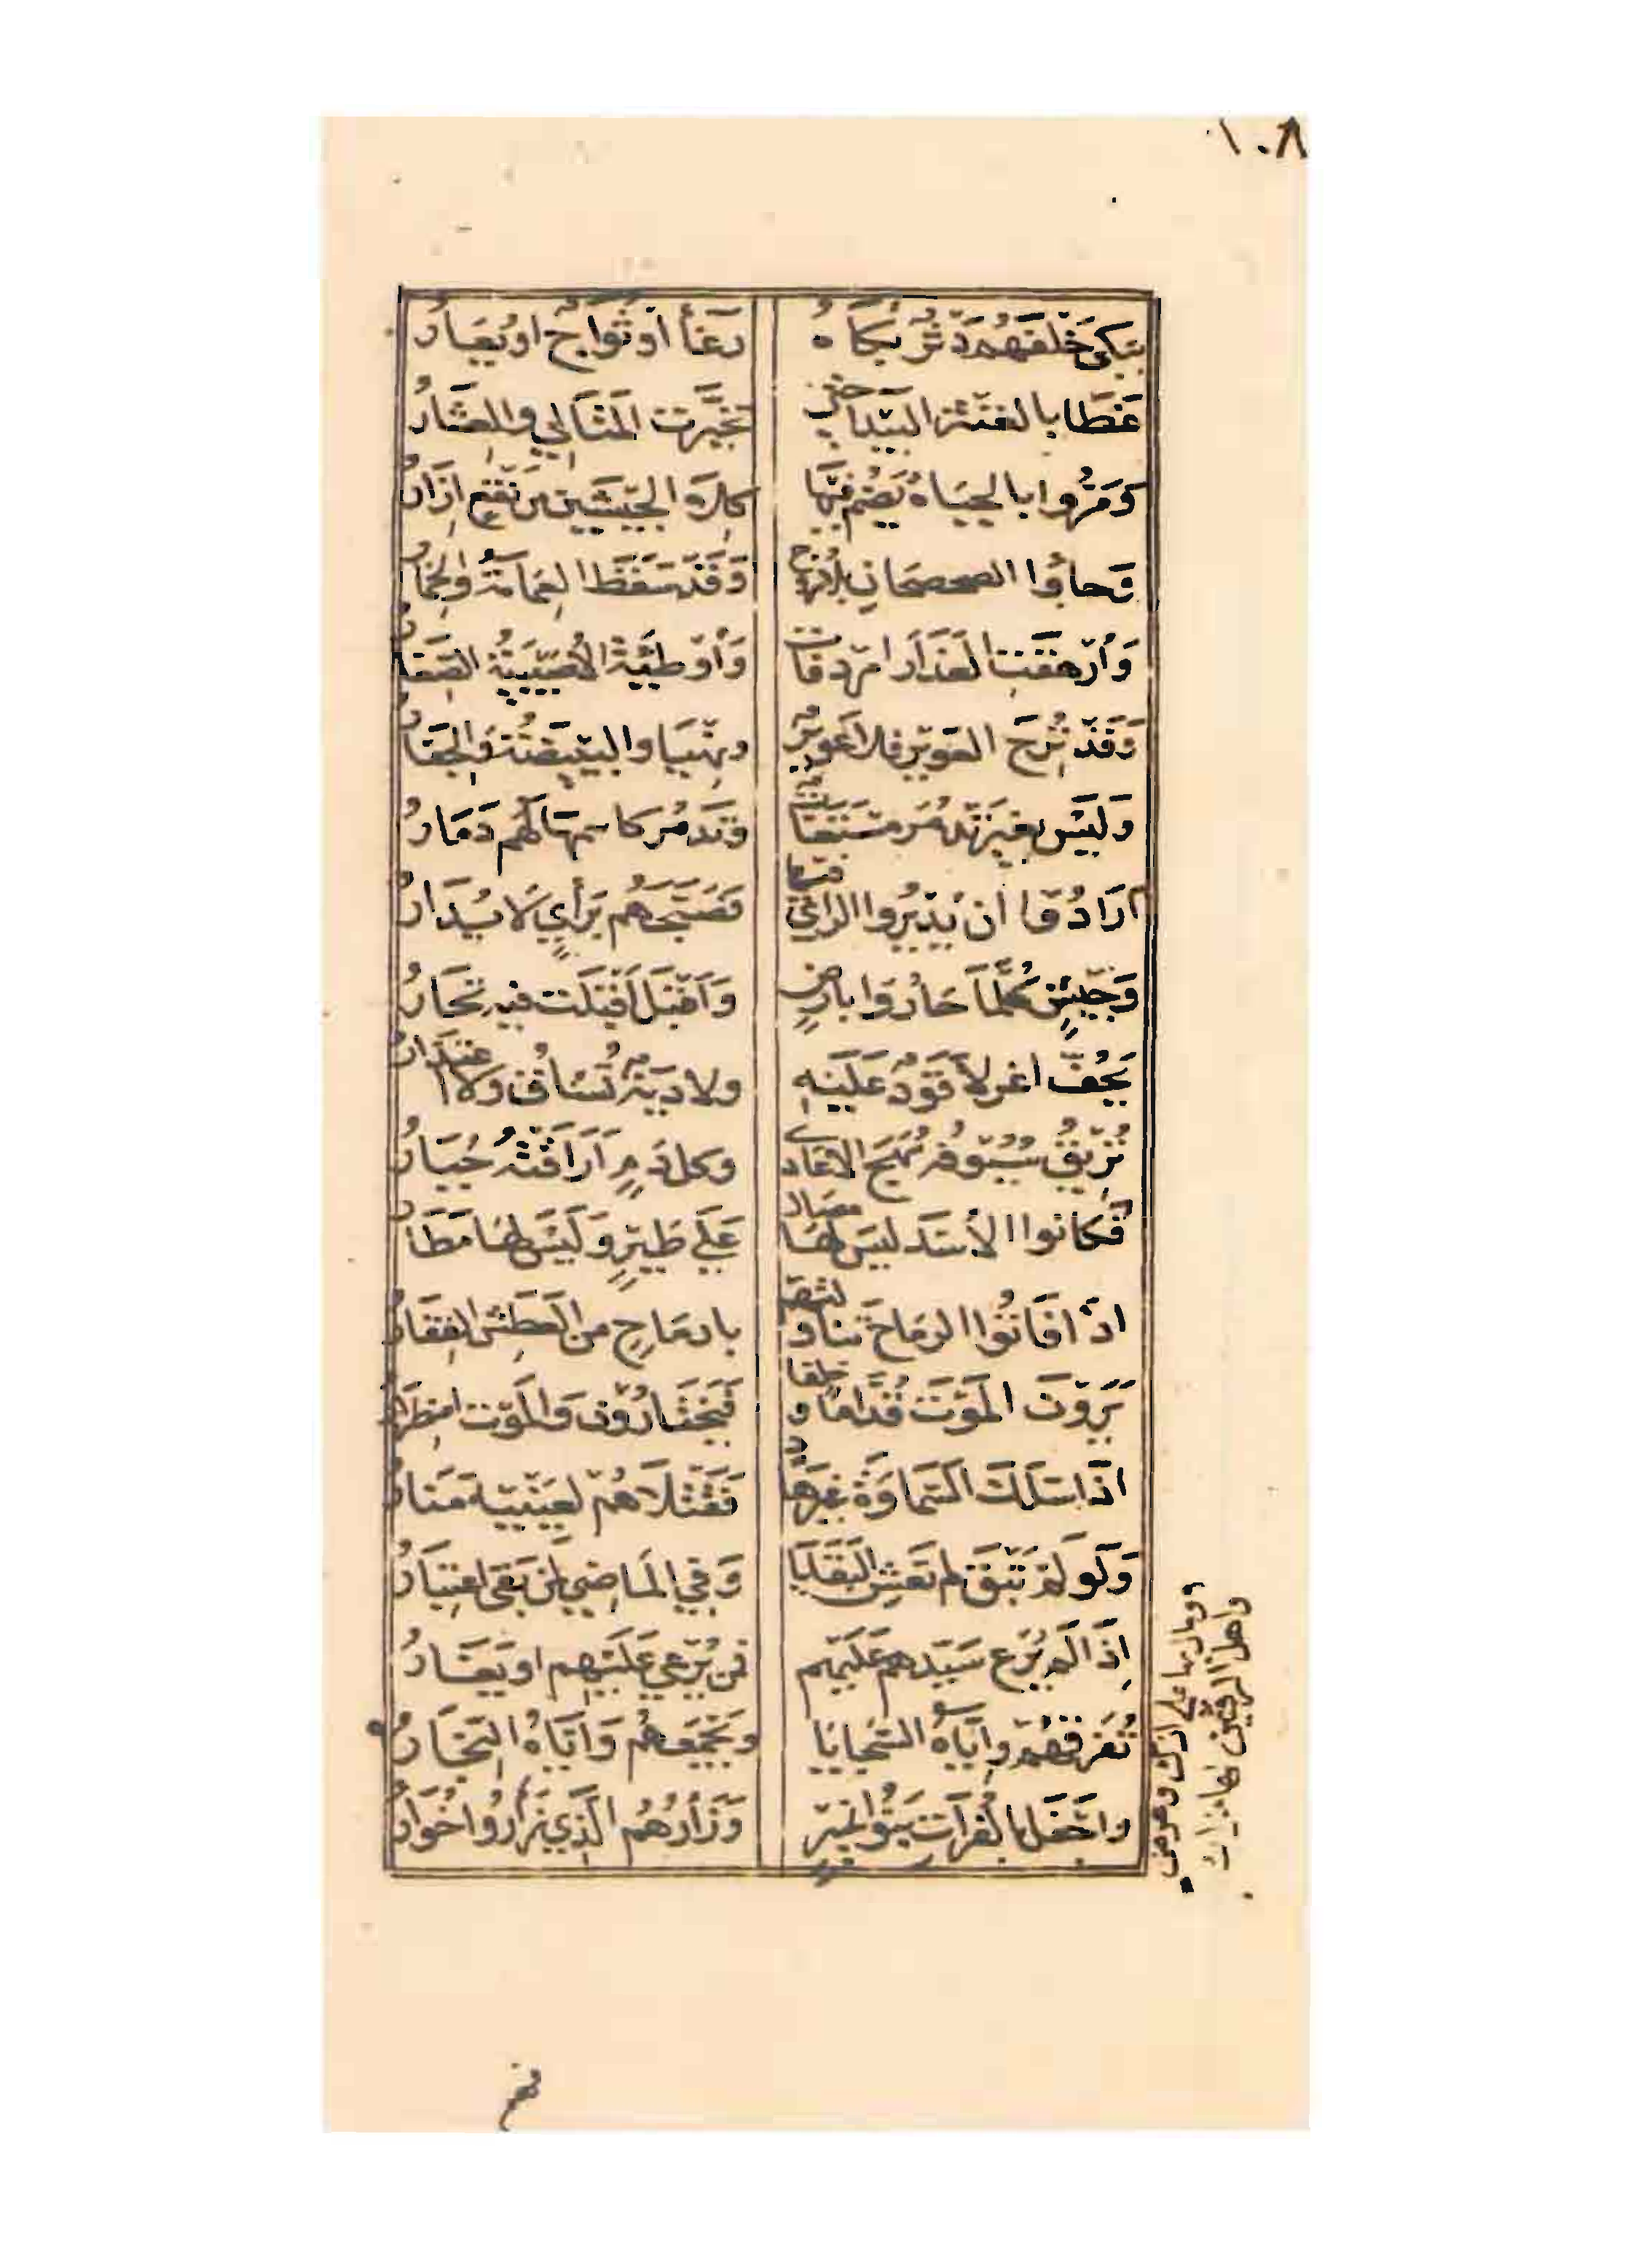 ١٠٨
يبكي خلفهم دَثْرٌ بكاهُ رغاءٌ أو ثؤاجٌ او يُعارُ
غطا بالغنثر البيدا حتى تخيّرت المتالي والعشارُ
وَمرّوا بالجباهُ يضم فيها كلا الجيشين من نقع ازارُ
وَجاؤا الصحصحان بلا سروج وَقد سقط العمامة والخمارُ
وَأرهقت العذارا مردفات وَأوطئة الأصيبية الصغارُ
وَقد نزح العوير فلا عوير ونهيا والبييضة والجفارُ
وَليس بغير تدمر مستغاث وتدمر كاسمها لهم دمارُ
ارادوا ان يديروا الراي فيها فصبحهم برأيٍ لا يدارُ
وَجيشٍ كلما حاروا بارض وَاقبل اقبلت فيه تحارُ
يحفّ اغر لا قودٌ عليه ولا ديةٌ تساق ولا اعتذارُ
تريق سيوفه مهج الاعادي وكل دمٍ اراقته جبارُ
فكانوا الأسد ليس لها مصال على طيرٍ وليس لها مطارُ
اذا فاتوا الرماح تناولتهم بارماحٍ من العطش القفارُ
يرون الموت قدّاما وخلفا فيختارون والموت اضطرارُ
اذا سلك السماوة غير هاد فقتلاهم لعينيه منارُ
وَلو لم تبق لم تعش البقايا وَفي الماضي لمن بقى اعتبارُ
إذا لم يرع سيدهم عليهم فمن يرعي عليهم او يغارُ
تفرقهم واياه السجايا ويجمعهم واياه النجارُ
ومال بها على ارك وعرض
واهل الرقتين لها مزار
واجفل بالفرات بنو نمير وَزأرهم الذي زأروا خوارُ
فهم